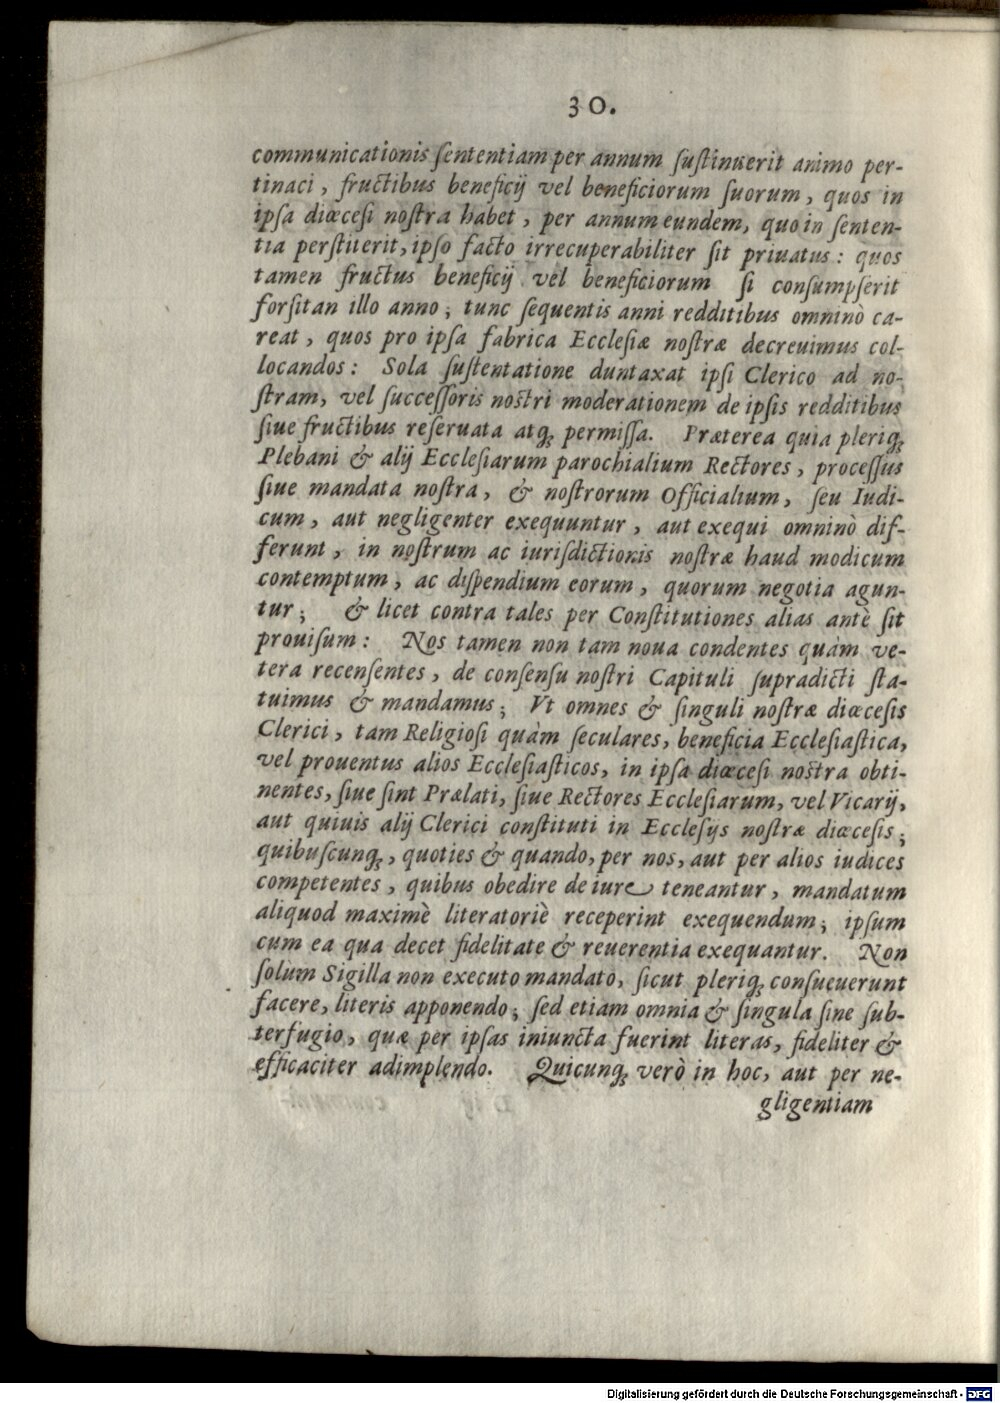 30.
communicationis ſententiam per annum ſuſtinuerit animo per-
tinaci, fructibus beneficij vel beneficiorum ſuorum, quos in
ipſa diœceſi noſtra habet, per annum eundem, quo in ſenten-
tia perſtiterit, ipſo facto irrecuperabiliter ſit priuatus: quos
tamen fructus beneficij vel beneficiorum ſi conſumpſerit
forſitan illo anno; tunc ſequentis anni redditibus omninò ca-
reat, quos pro ipſa fabrica Eccleſiæ noſtræ decreuimus col-
locandos: Sola ſuſtentatione duntaxat ipſi Clerico ad no-
ſtram, vel ſucceſſoris noſtri moderationem de ipſis redditibus
ſiue fructibus reſeruata atq; permiſſa. Præterea quia pleriq;
Plebani & alij Eccleſiarum parochialium Rectores, proceſſus
ſiue mandata noſtra, & noſtrorum Officialium, ſeu Iudi-
cum, aut negligenter exequuntur, aut exequi omninò dif-
ferunt, in noſtrum ac iuriſdictionis noſtræ haud modicum
contemptum, ac diſpendium eorum, quorum negotia agun-
tur; & licet contra tales per Conſtitutiones alias antè ſit
prouiſum: Nos tamen non tam noua condentes quàm ve-
tera recenſentes, de conſenſu noſtri Capituli ſupradicti ſta-
tuimus & mandamus; Vt omnes & ſinguli noſtræ diœceſis
Clerici, tam Religioſi quàm ſeculares, beneficia Eccleſiaſtica,
vel prouentus alios Eccleſiaſticos, in ipſa diœceſi noſtra obti-
nentes, ſiue ſint Prælati, ſiue Rectores Eccleſiarum, vel Vicarij,
aut quiuis alij Clerici conſtituti in Eccleſijs noſtræ diœceſis;
quibuſcunq;, quoties & quando, per nos, aut per alios iudices
competentes, quibus obedire de iure teneantur, mandatum
aliquod maximè literatoriè receperint exequendum; ipſum
cum ea qua decet fidelitate & reuerentia exequantur. Non
ſolùm Sigilla non executo mandato, ſicut pleriq; conſueuerunt
facere, literis apponendo; ſed etiam omnia & ſingula ſine ſub-
terfugio, quæ per ipſas iniuncta fuerint literas, fideliter &
efficaciter adimplendo. Quicunq; verò in hoc, aut per ne-
gligentiam
Digitalisierung gefördert durch die Deutsche Forschungsgemeinschaft - DFG